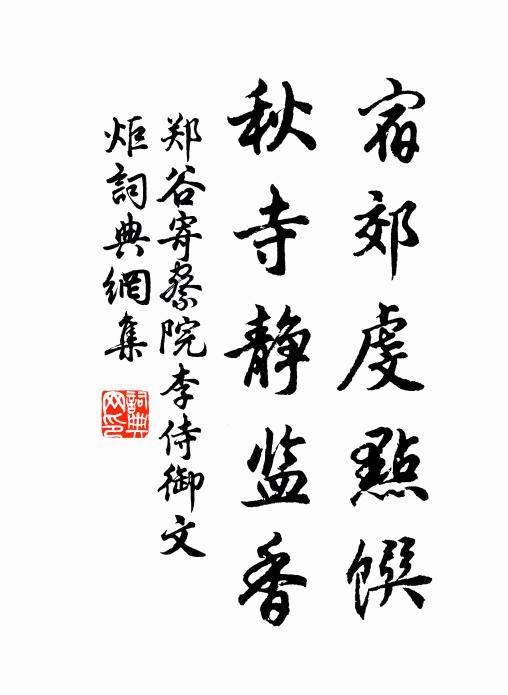 宿郊虔點馔
秋寺静监香
郑谷寄察院李侍御文
炬詞典網集
詞典
网印